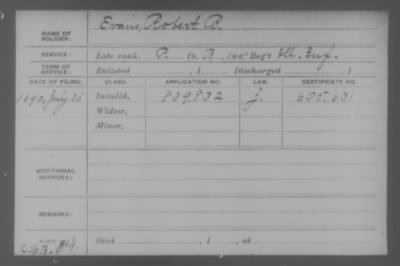 NAME OF SOLDIER: Evans, Robert B.
SERVICE: Late rank, P. Co. B, 144" Reg't Ill. Inf.
TERM OF SERVICE: Enlisted , 1 Discharged , 1
DATE OF FILING. CLASS. APPLICATION NO. LAW. CERTIFICATE NO.
1890, July 25 Invalid, 839,832 J. 605,631
Widow,
Minor,
ADDITIONAL SERVICES:
REMARKS:
Died , 1 , at